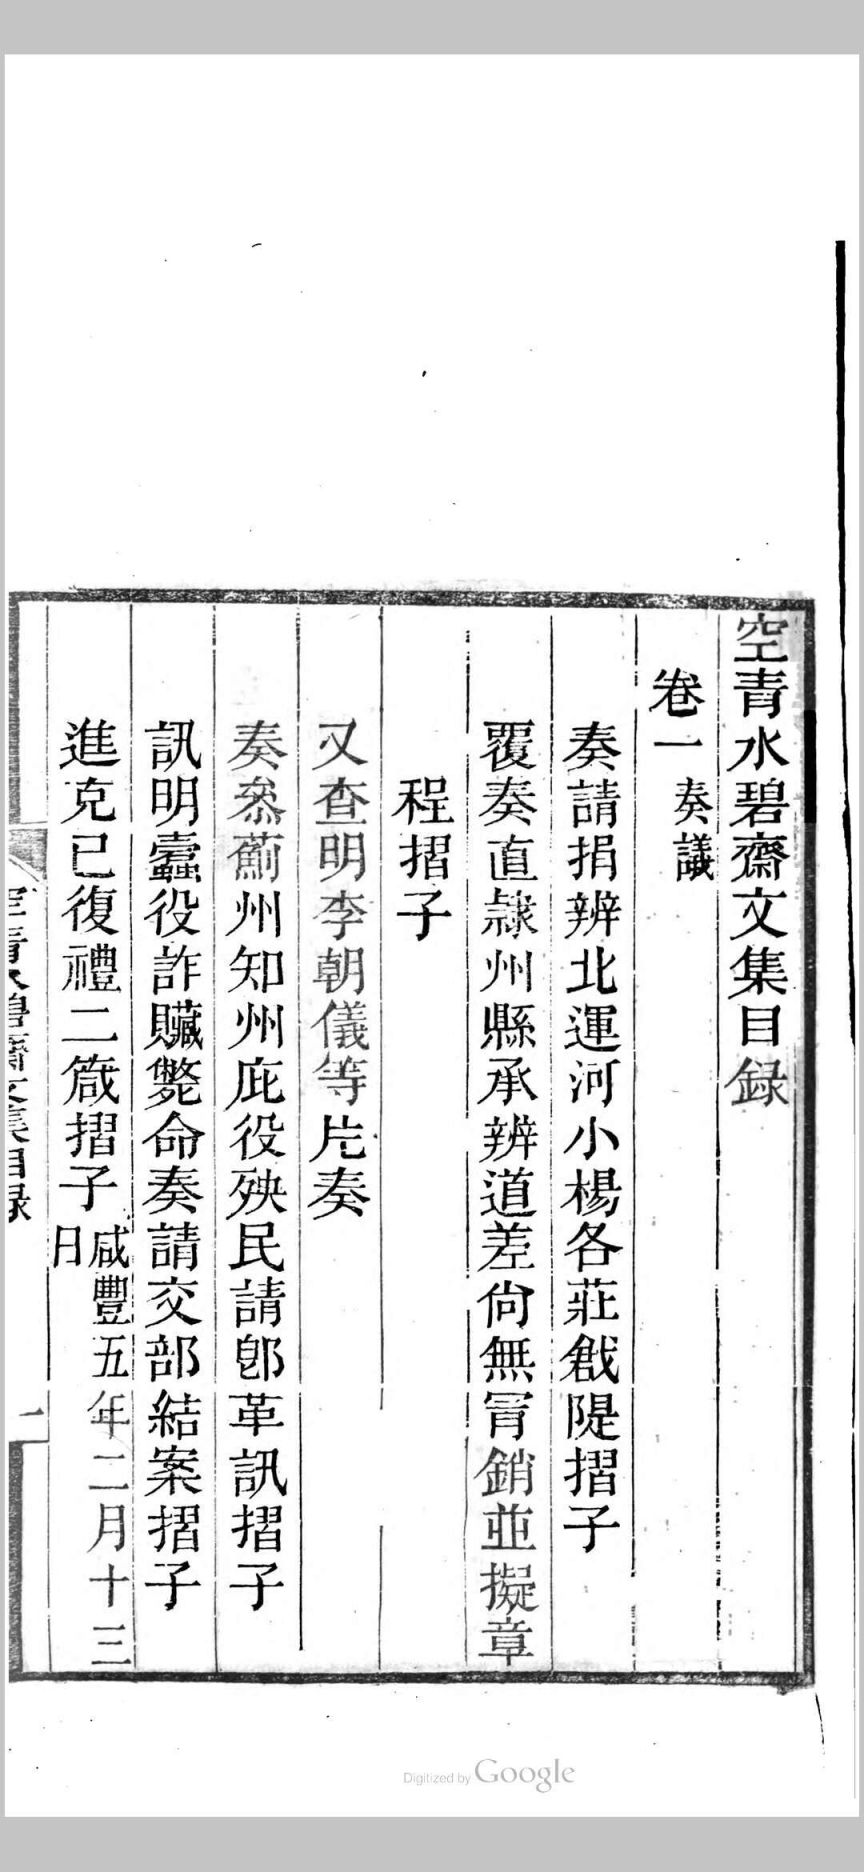 空青水碧齋文集目録
卷一 奏議
奏請捐辨北運河小楊各莊戧隄摺子
覆奏直隷州縣承辨道差尙無冐銷並擬章
程摺子
又查明李朝儀等片奏
奏叅薊州知州庇役殃民請卽革訊摺子
訊明蠹役詐贓斃命奏請交部結案摺子
進克己復禮二箴摺子 咸豐五年二月十三
日
空青水碧齋文集目録
一
Digitized by Google